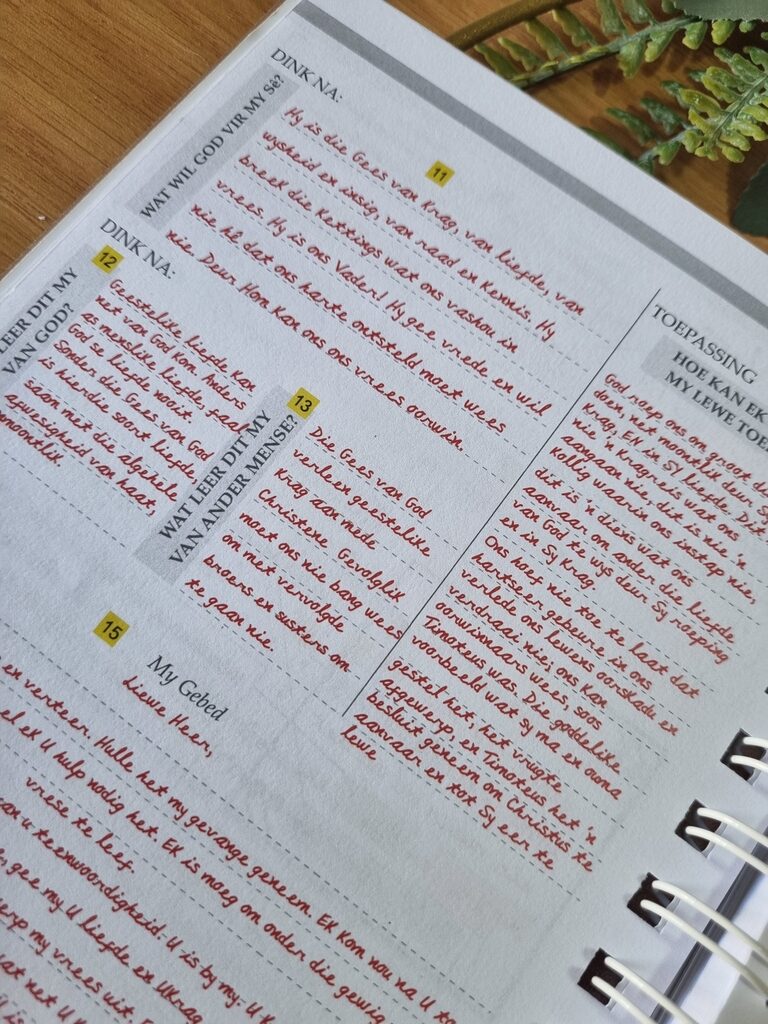 DINK NA:
WAT WIL GOD VIR MY SÊ?
11
Hy is die Gees van Krag, van liefde, van
wysheid en insig, van raad en Kennis. Hy
breek die Kettings wat ons vashou in
vrees. Hy is ons Vader! Hy gee vrede en wil
nie hê dat ons harte ontsteld moet wees
nie. Deur Hom Kan ons ons vrees oorwin.
DINK NA:
12
LEER DIT MY
VAN GOD?
Geestelike liefde Kan
net van God Kom. Anders
as menslike liefde, faal
God se liefde nooit.
Sonder die Gees van God
is hierdie soort liefde
saam met die algehele
afwesigheid van haat,
onmoontlik.
13
WAT LEER DIT MY
VAN ANDER MENSE?
Die Gees van God
verleen geestelike
Krag aan mede
Christene. Gevolglik
moet ons nie bang wees
om met vervolgde
broers en susters om
te gaan nie.
TOEPASSING
HOE KAN EK
MY LEWE TOE
God roep ons om groot
doen, net moontlik deur
Krag, EN in Sy liefde.
nie 'n Kragreis wat ons
aangaan nie, dit is nie 'n
Kollig waarin ons instap nie,
dit is 'n diens wat ons
aanvaar om ander die liefde
van God te wys deur Sy roeping
en in Sy Krag
Ons hoef nie toe te laat dat
hartseer gebeure in ons
verlede ons lewens oorskadu en
verdraai nie; ons Kan
oorwinnaars wees, soos
Timoteus was. Die goddelike
voorbeeld wat sy ma en ouma
gestel het, het vrugte
afgewerp, en Timoteus het 'n
besluit geneem om Christus te
aanvaar en tot Sy eer te
lewe
15
My Gebed
Liewe Heer,
en verteer. Hulle het my gevange geneem. EK Kom nou na U
el eK U hulp nodig het. EK is moeg om onder die gewig
vrese te leef.
U teenwoordigheid. U is by my. U
gee my U liefde en U Krag
my vrees uit.
net U